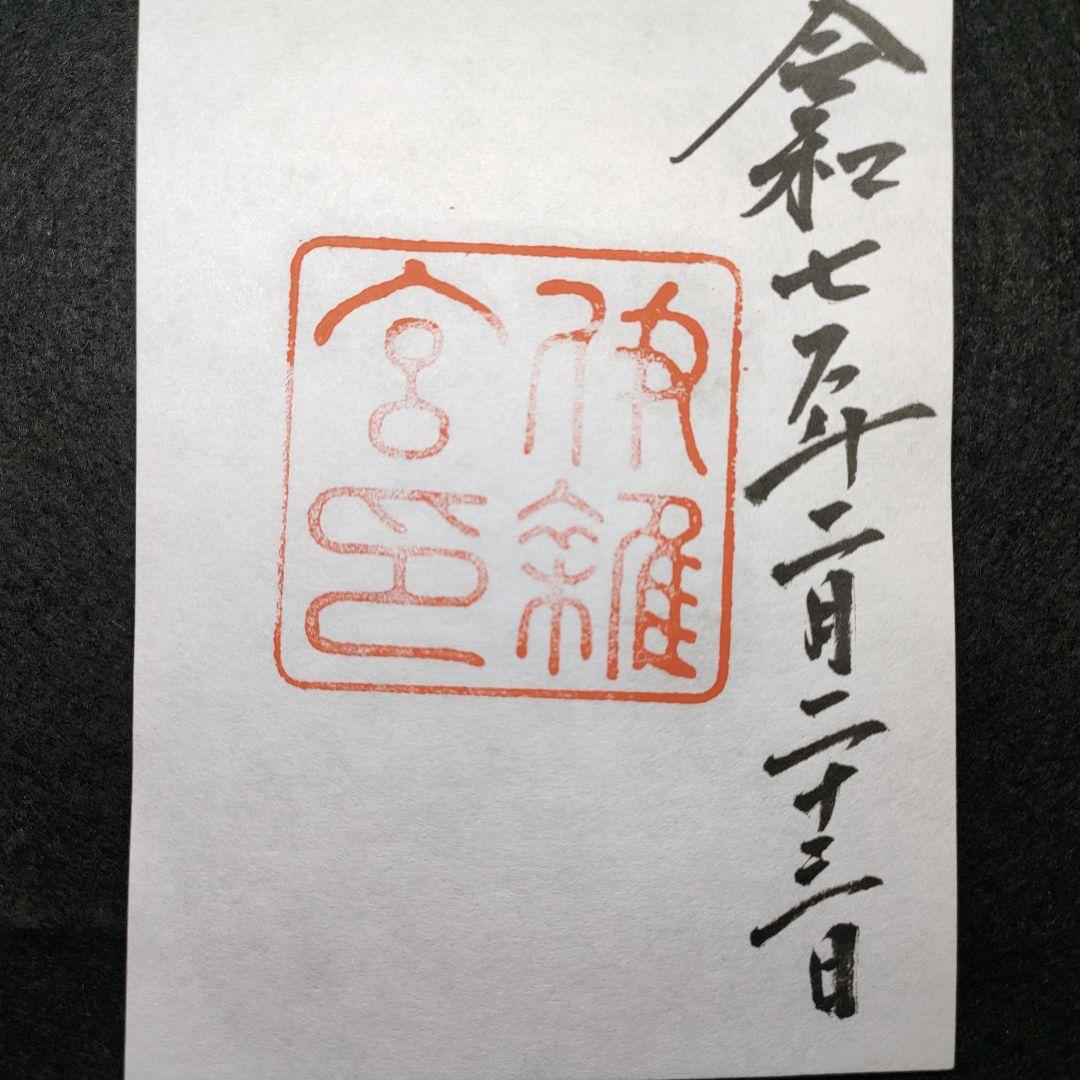 令和七年二月二十三日
伊雜
宮印